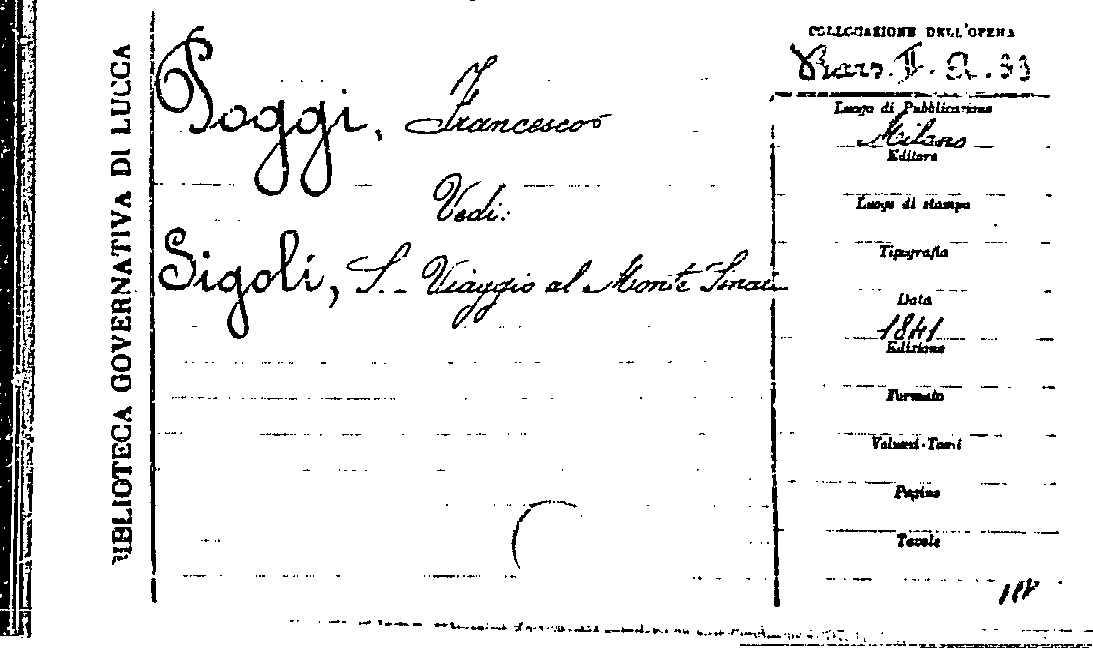 BIBLIOTECA GOVERNATIVA DI LUCCA
Poggi, Francesco
Vedi:
Sigoli, S. - Viaggio al Monte Sinai
COLLOCAZIONE DELL'OPERA
Luogo di Pubblicazione
Milano
Editore
Luogo di stampa
Tipografia
Data
1841
Edizione
Formato
Volumi-Tomi
Pagine
Tavole